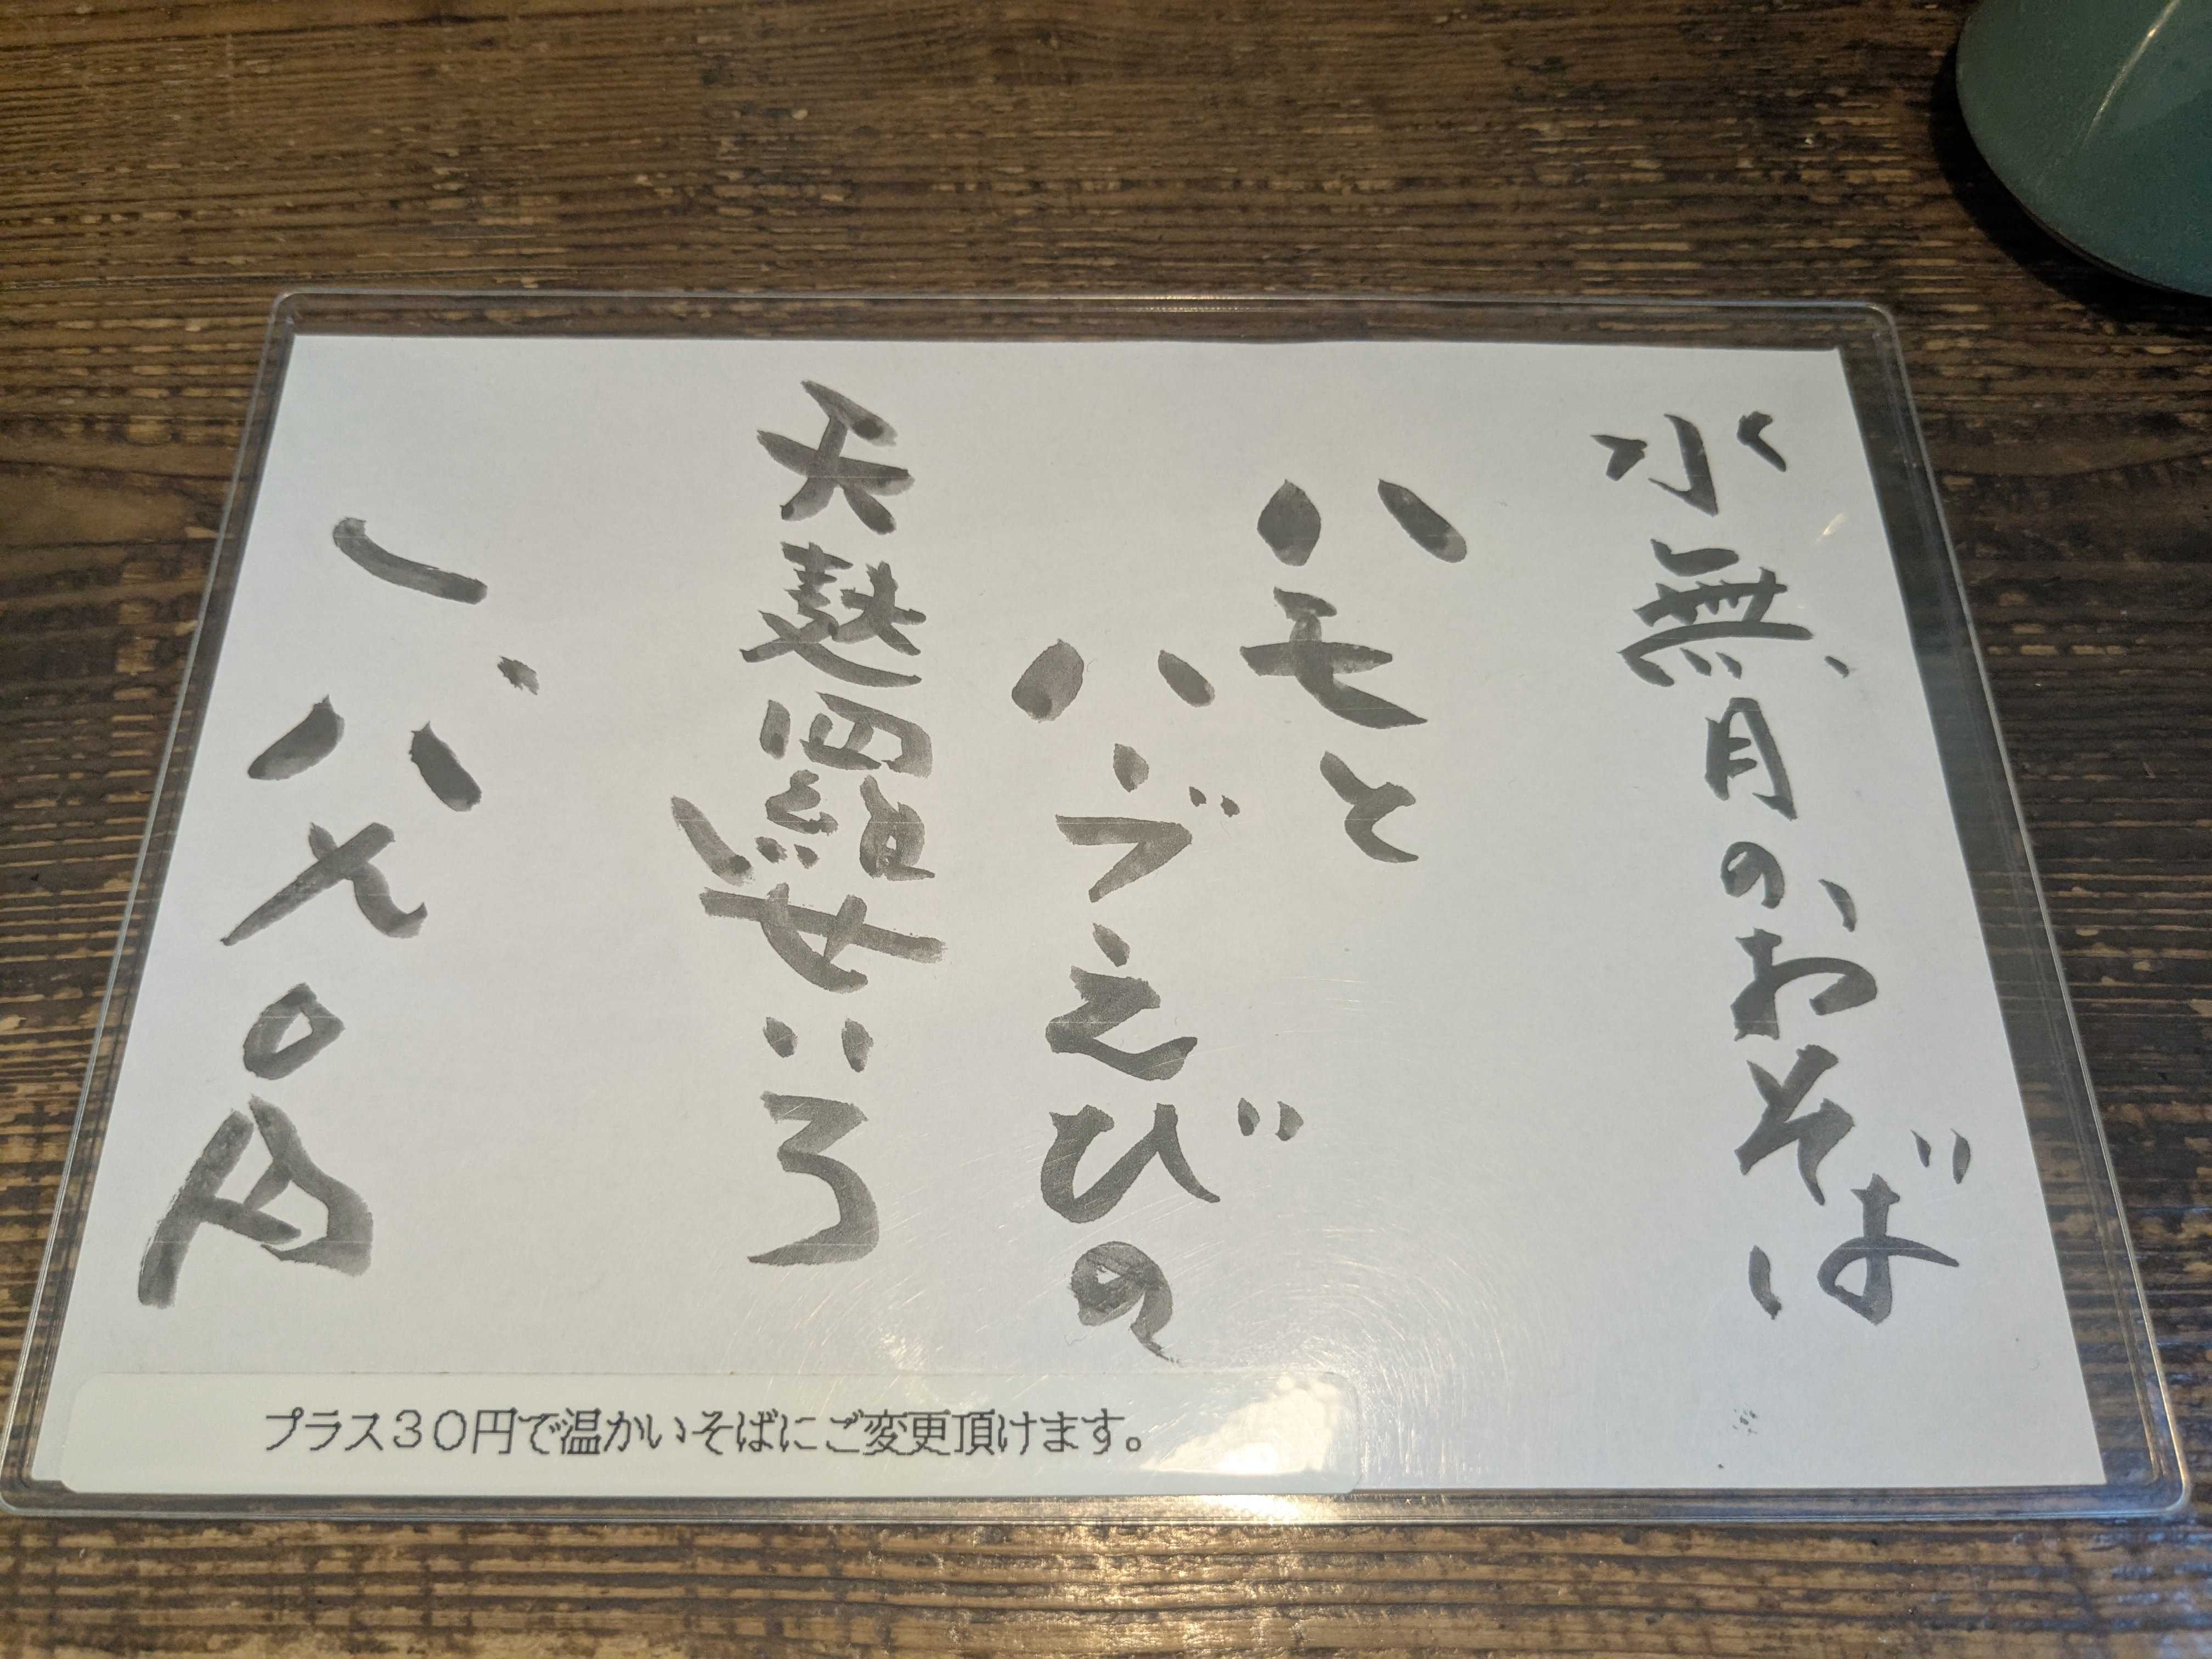 水無月のおそば
ハモと
ハブえびの
天麩羅せいろ
一、八七〇円
プラス３０円で温かいそばにご変更頂けます。